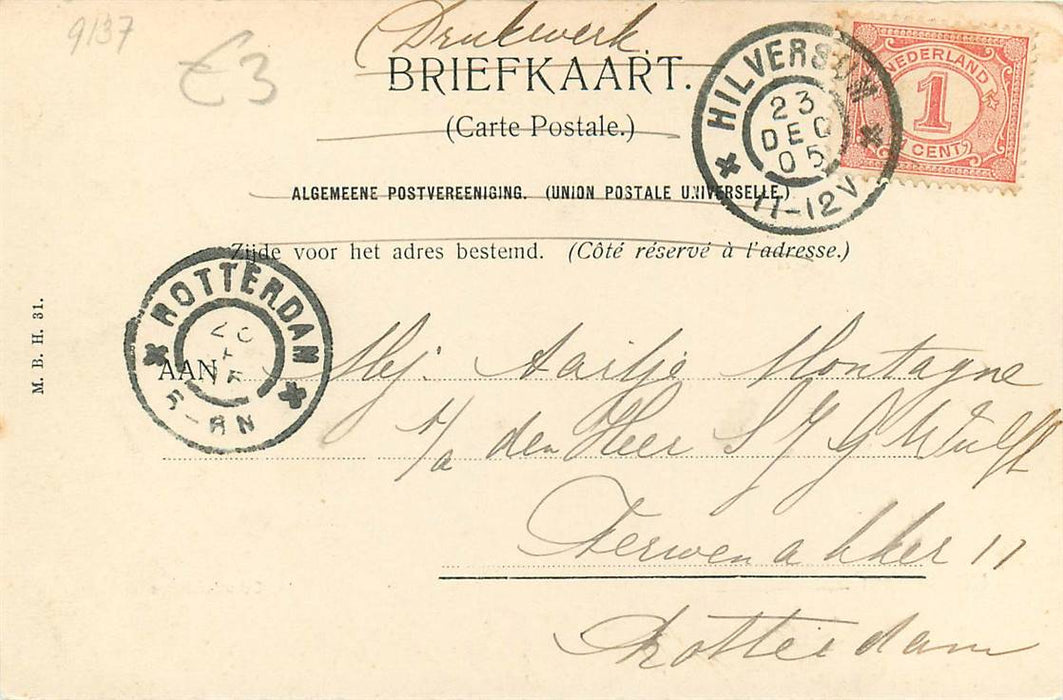 9137
€3
Drukwerk.
BRIEFKAART.
(Carte Postale.)
ALGEMEENE POSTVEREENIGING. (UNION POSTALE UNIVERSELLE.)
Zijde voor het adres bestemd. (Côté réservé à l'adresse.)
HILVERSUM
23
DEC
05
11-12V
NEDERLAND
1
CENT
ROTTERDAM
M. B. H. 31.
AAN
Mej. Aaltje Montagne
p/a den Heer S J G Wulff
Terwenakker 11
Rotterdam